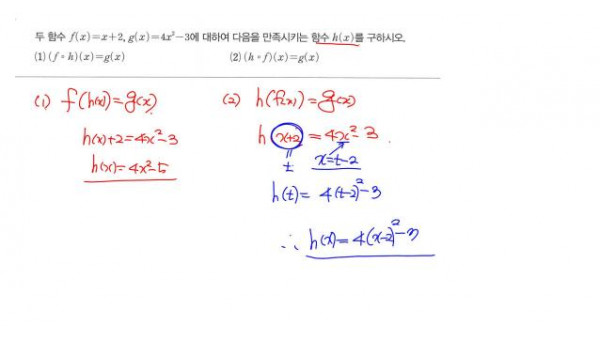 두 함수 f(x)=x+2, g(x)=4x²-3에 대하여 다음을 만족시키는 함수 h(x)를 구하시오.
(1) (f∘h)(x)=g(x)
(2) (h∘f)(x)=g(x)
(1) f(h(x))=g(x)
h(x)+2=4x²-3
h(x)=4x²-5
(2) h(f(x))=g(x)
h(x+2)=4x²-3
=
t
x=t-2
h(t)=4(t-2)²-3
∴ h(x)=4(x-2)²-3